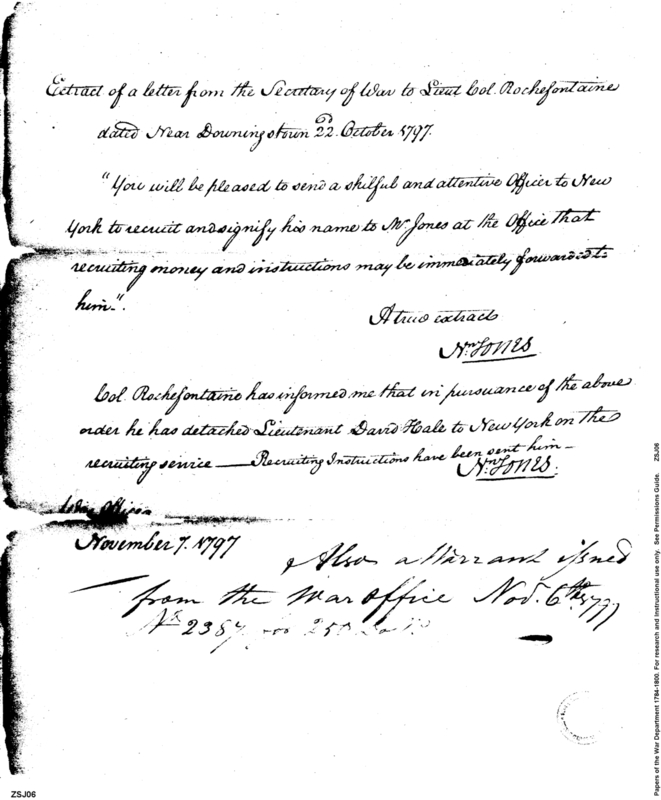 Extract of a letter from the Secretary of War to Lieut Col. Rochefontaine
dated Near Downingstown 22d. October 1797.
"You will be pleased to send a skilful and attentive Officer to New
York to recruit and signify his name to Mr Jones at the Office that
recruiting money and instructions may be immediately forwarded to
him".
A true extract
Nn Jones
Col. Rochefontaine has informed me that in pursuance of the above
order he has detached Lieutenant David Hale to New York on the
recruiting service — Recruiting Instructions have been sent him —
Nn Jones.
War Office
November 7. 1797
Also a Warrant issued
from the War Office Nov. 6th 1797
No 2387 for 250
Papers of the War Department 1784-1800. For research and instructional use only. See Permissions Guide. ZSJ06
ZSJ06